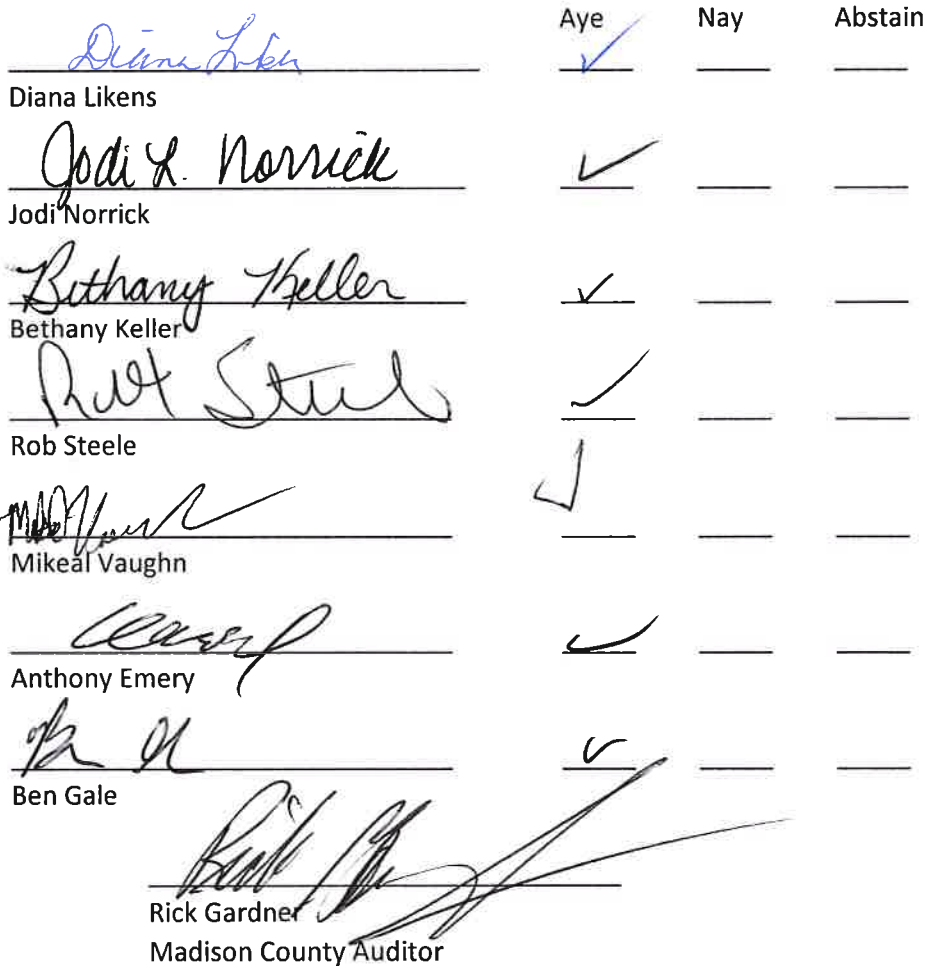 Aye Nay Abstain
Diana Likens ✓
Diana Likens
Jodi L. Norrick ✓
Jodi Norrick
Bethany Keller ✓
Bethany Keller
Steele ✓
Rob Steele
✓
Mikeal Vaughn
✓
Anthony Emery
Ben ✓
Ben Gale
Rick
Rick Gardner
Madison County Auditor